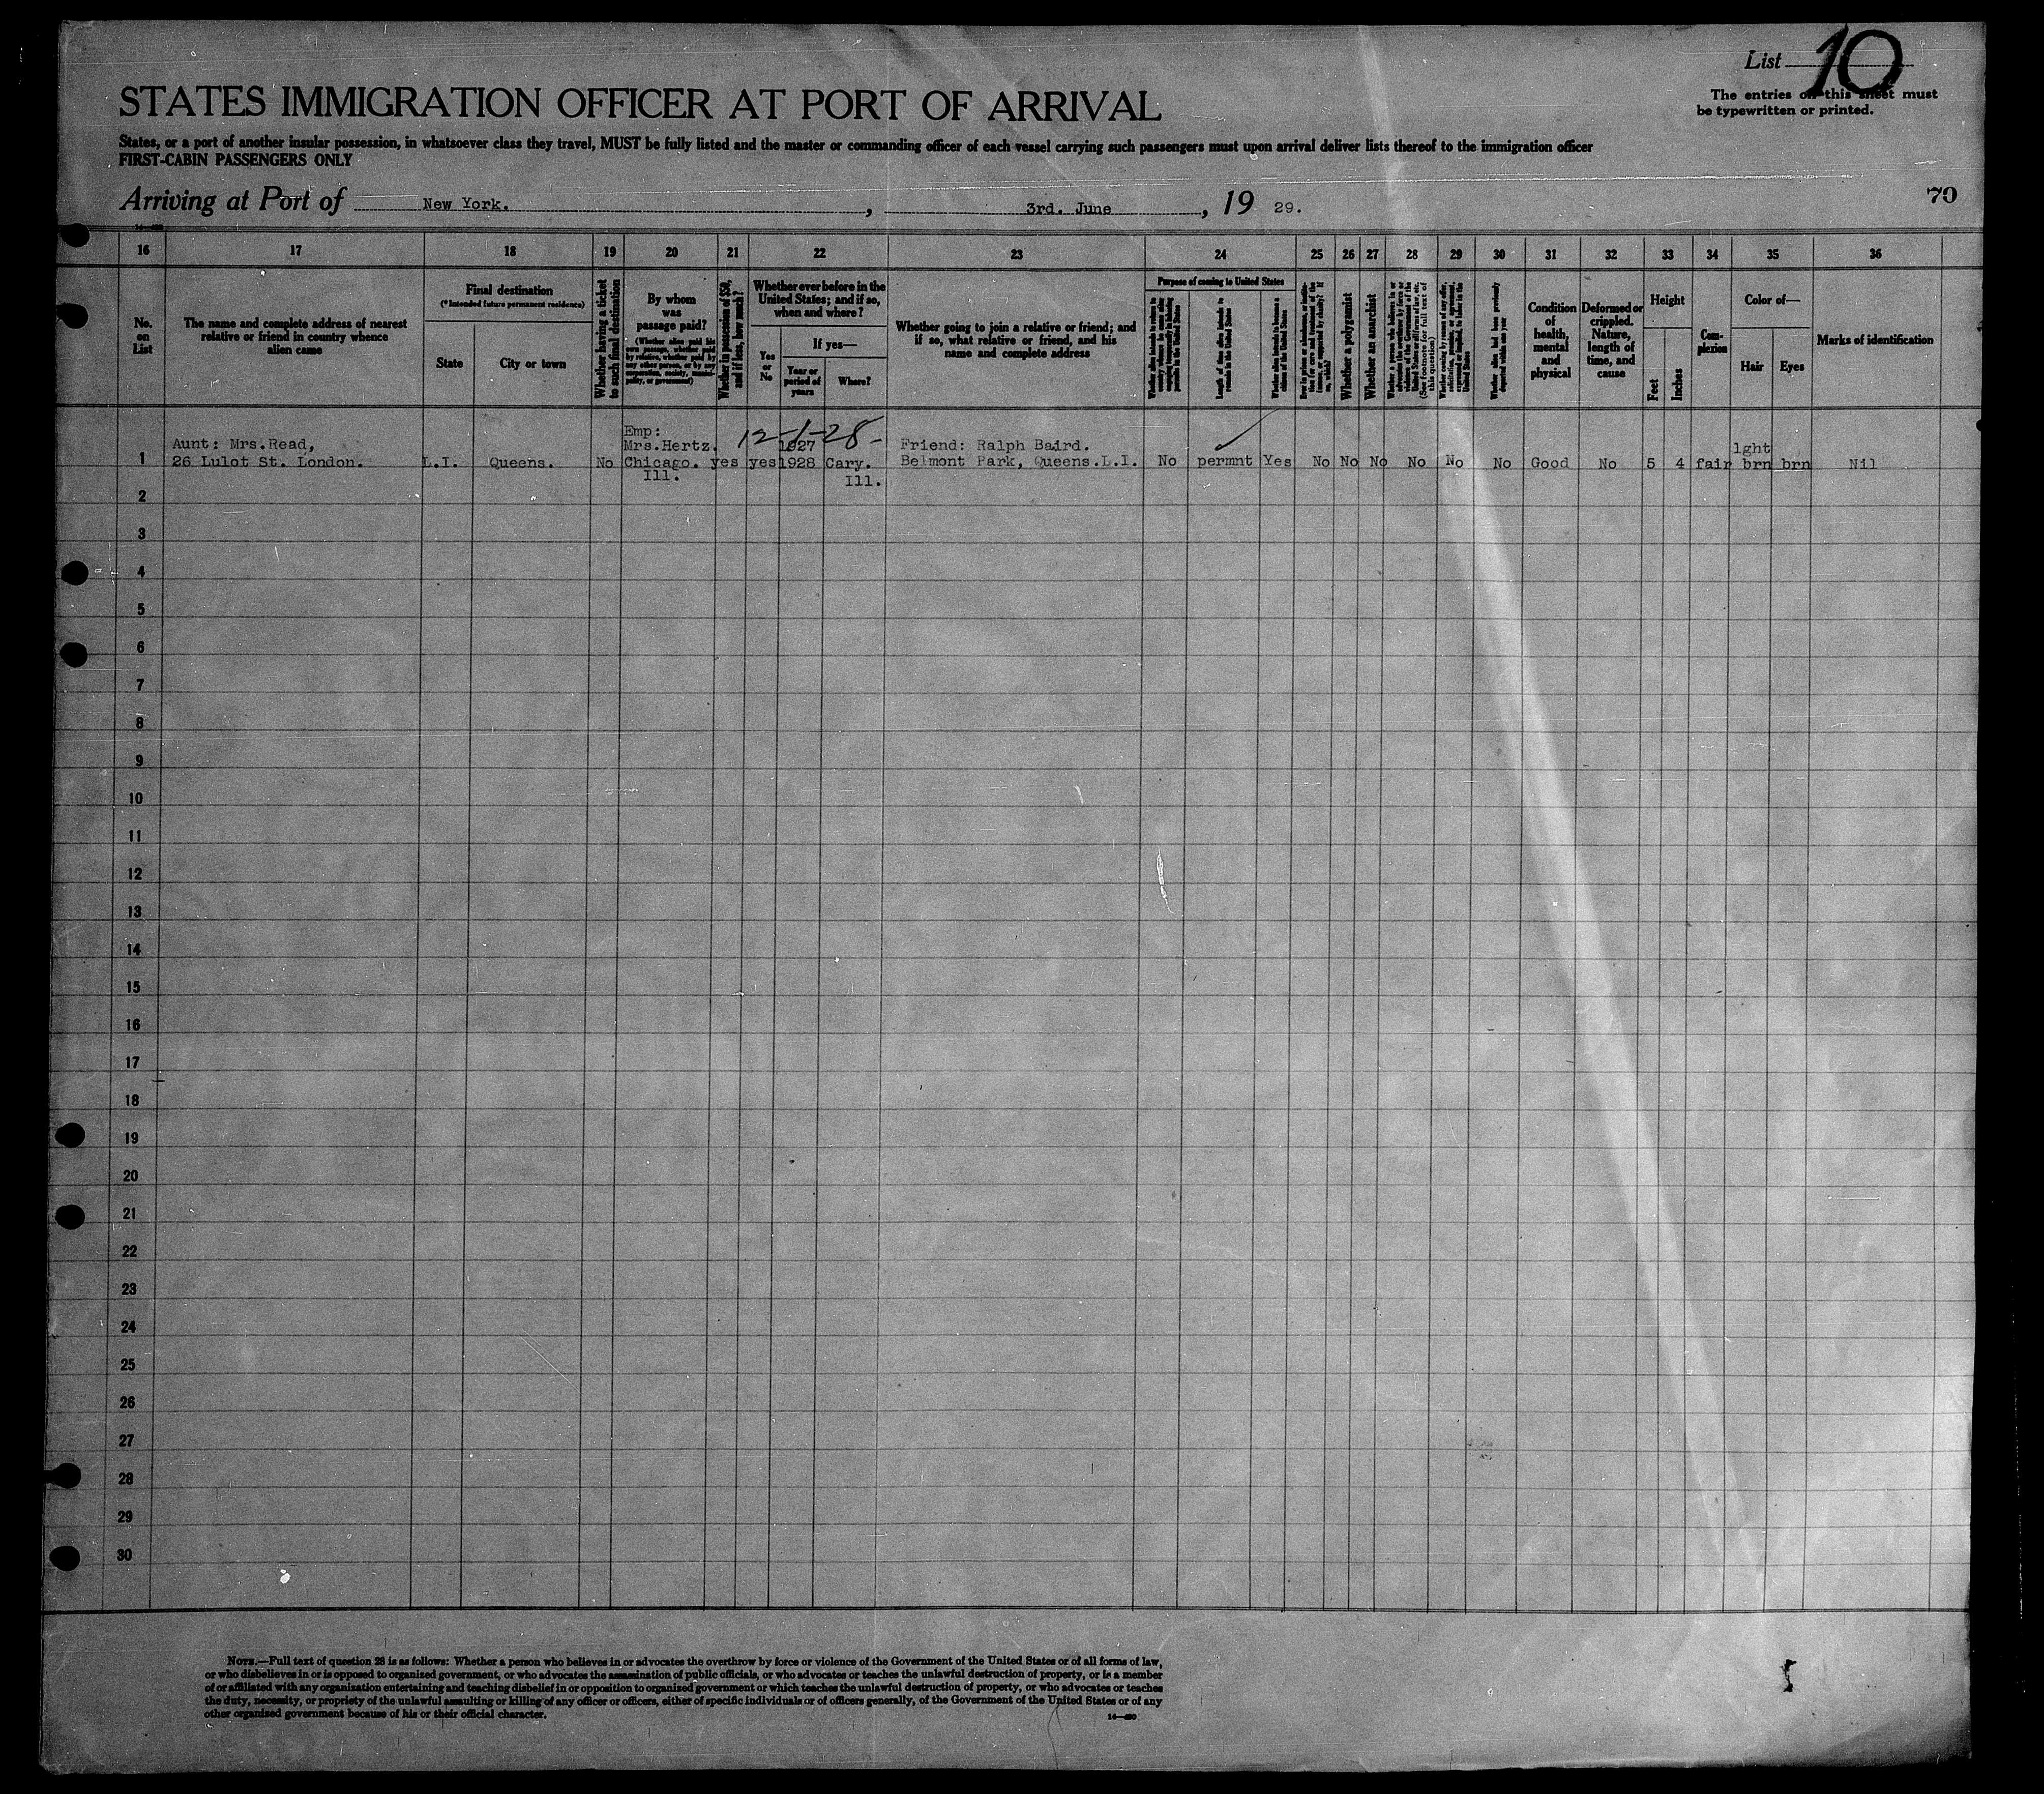 List 10
The entries on this sheet must
be typewritten or printed.
STATES IMMIGRATION OFFICER AT PORT OF ARRIVAL
States, or a port of another insular possession, in whatsoever class they travel, MUST be fully listed and the master or commanding officer of each vessel carrying such passengers must upon arrival deliver lists thereof to the immigration officer
FIRST-CABIN PASSENGERS ONLY
Arriving at Port of New York. , 3rd. June , 19 29.
70
16 17 18 19 20 21 22 23 24 25 26 27 28 29 30 31 32 33 34 35 36
No.
on
List
The name and complete address of nearest
relative or friend in country whence
alien came
Final destination
(*Intended future permanent residence)
State
City or town
Whether having a ticket
to such final destination
By whom
was
passage paid?
(Whether alien paid his
own passage, whether paid
by relative, whether paid by
any other person, or by any
corporation, society, munici-
pality, or government)
Whether in possession of $50,
and if less, how much?
Whether ever before in the
United States; and if so,
when and where?
Yes
or
No
If yes—
Year or
period of
years
Where?
Whether going to join a relative or friend; and
if so, what relative or friend, and his
name and complete address
Purpose of coming to United States
Length of time alien intends to
remain in the United States
Whether alien intends to become a
citizen of the United States
Whether a polygamist
Whether an anarchist
(See footnote for full text of
this question)
Whether alien had been previously
deported within one year
Condition
of
health,
mental
and
physical
Deformed or
crippled.
Nature,
length of
time, and
cause
Height
Feet
Inches
Com-
plexion
Color of—
Hair
Eyes
Marks of identification
Emp: 12-1-28-
Aunt: Mrs.Read, Mrs.Hertz. 1927 Friend: Ralph Baird. lght
1 26 Lulot St. London. L.I. Queens. No Chicago. yes yes 1928 Cary. Belmont Park, Queens.L.I. No permnt Yes No No No No No No Good No 5 4 fair brn brn Nil
Ill. Ill.
2
3
4
5
6
7
8
9
10
11
12
13
14
15
16
17
18
19
20
21
22
23
24
25
26
27
28
29
30
NOTE.—Full text of question 28 is as follows: Whether a person who believes in or advocates the overthrow by force or violence of the Government of the United States or of all forms of law,
or who disbelieves in or is opposed to organized government, or who advocates the assassination of public officials, or who advocates or teaches the unlawful destruction of property, or is a member
of or affiliated with any organization entertaining and teaching disbelief in or opposition to organized government or which teaches the unlawful destruction of property, or who advocates or teaches
the duty, necessity, or propriety of the unlawful assaulting or killing of any officer or officers, either of specific individuals or of officers generally, of the Government of the United States or of any
other organized government because of his or their official character.